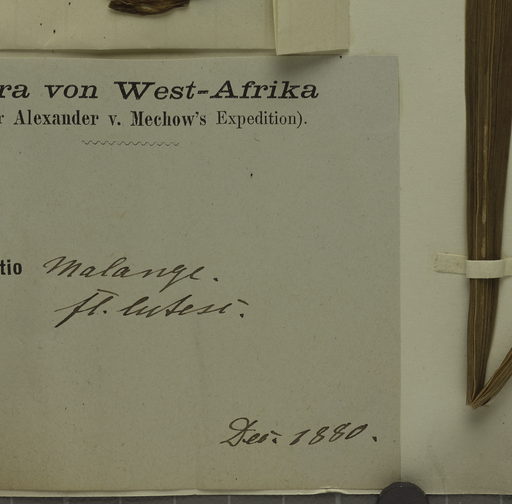 ra von West-Afrika
r Alexander v. Mechow's Expedition).
tio Malange.
fl. lutesc.
Dec. 1880.